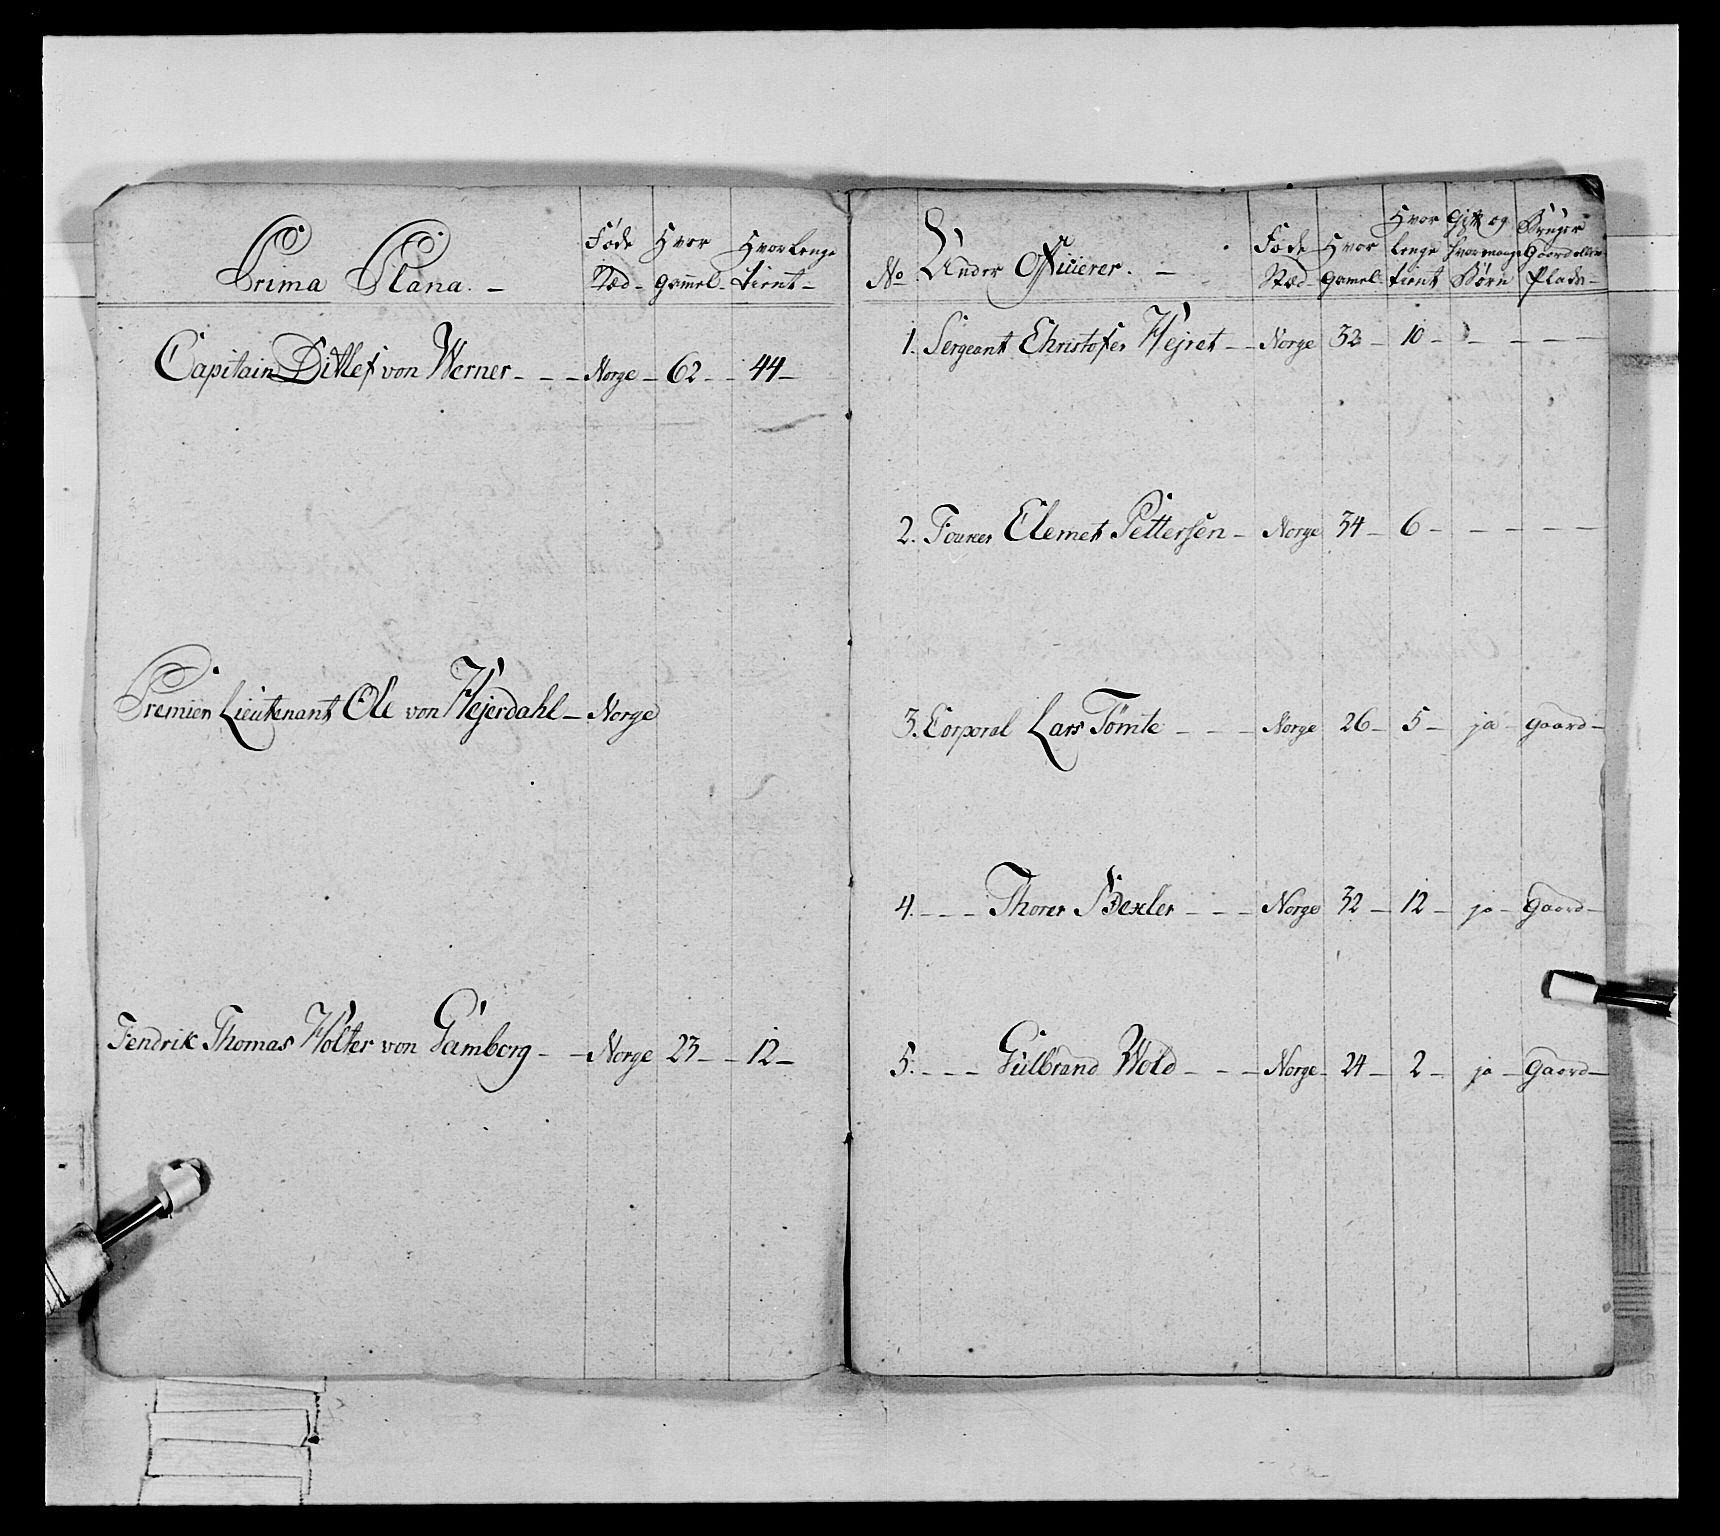 Prima Plana. - Føde Stæd - Hvor gammel - Hvor Lenge tient -
Capitain Ditlef von Werner - - - Norge - 62 - - 44 -
Premier Lieutenant Ole von Hejerdahl - Norge
Fendrik Thomas Holter von Gamborg - - Norge 23 - - 12 -
No Under Officierer. - Føde Stæd - Hvor gamel - Hvor lenge tient Gift og hvor mange Børn Bruger Gaard eller Plads -
1. Sergeant Christofer Hejret - - Norge 32 - 10 - - - - -
2. Fourer Clemet Pettersen - Norge 34 - 6 - - - - -
3. Corporal Lars Tømte - - - Norge 26 - 5 - ja - gaard -
4. - - - Thorer Bexler - - - Norge 32 - 12 - ja - gaard -
5. - - - Gulbrand Wold - - - Norge - 24 - 2 - ja - gaard -